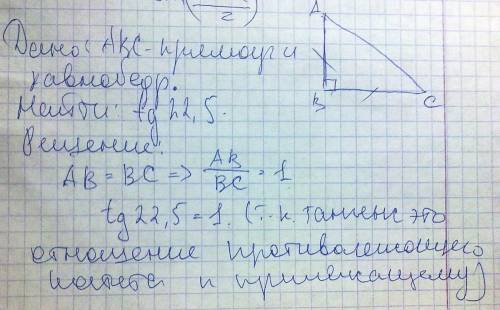 2
A
Дано: АВС-прямоуг и
равнобедр.
Найти: tg 22,5.
B
C
Решение:
АВ = ВС => АВ/ВС = 1
tg 22,5 = 1. (т.к. тангенс это
отношение противолежащего
катета к прилежащему)